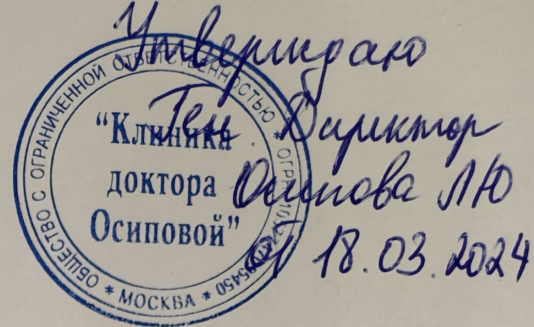 Утверждаю
Ген Директор
Осипова ЛЮ
от 18.03.2024
ОБЩЕСТВО С ОГРАНИЧЕННОЙ ОТВЕТСТВЕННОСТЬЮ * ОГРН
* МОСКВА *
"Клиника
доктора
Осиповой"